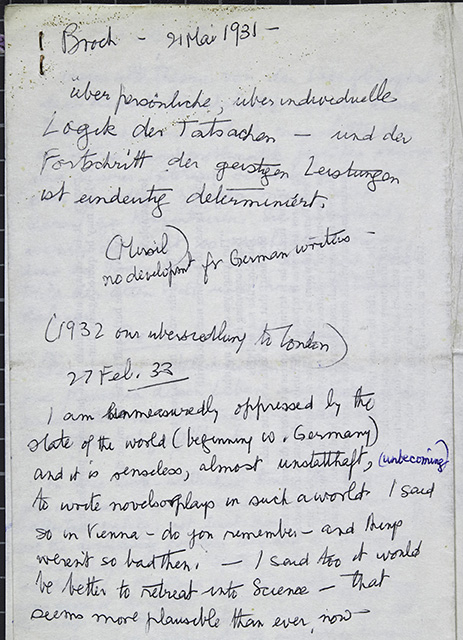 Broch - 21 Mai 1931 -
überpersönliche, überindividuelle
Logik der Tatsachen - und der
Fortschritt der geistigen Leistungen
ist eindeutig determiniert.
(Musil)
no developmt for German writers -
(1932 our ubersiedlung to London)
27 Feb. 33
I am unmeasuredly oppressed by the
state of the world (beginning w. Germany)
and it is senseless, almost unstatthaft, (unbecoming)
to write novels or plays in such a world I said
so in Vienna - do you remember - and things
weren't so bad then. - I said too it would
be better to retreat into Science - that
seems more plausible than ever now -